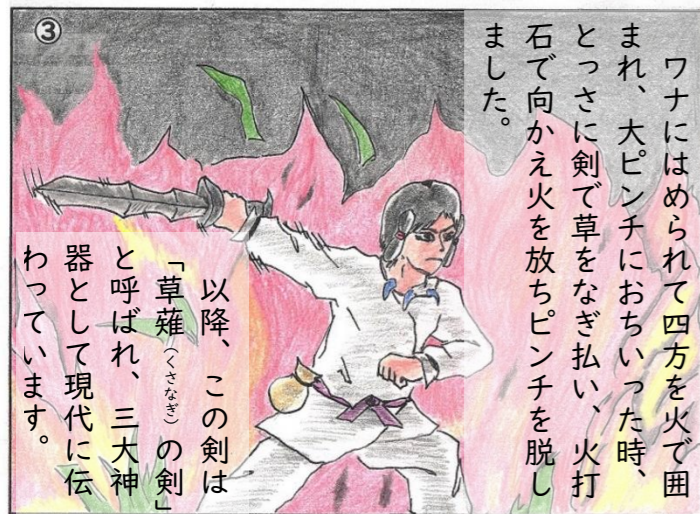 ③
ワナにはめられて四方を火で囲
まれ、大ピンチにおちいった時、
とっさに剣で草をなぎ払い、火打
石で向かえ火を放ちピンチを脱し
ました。
以降、この剣は
「草薙（くさなぎ）の剣」
と呼ばれ、三大神
器として現代に伝
わっています。